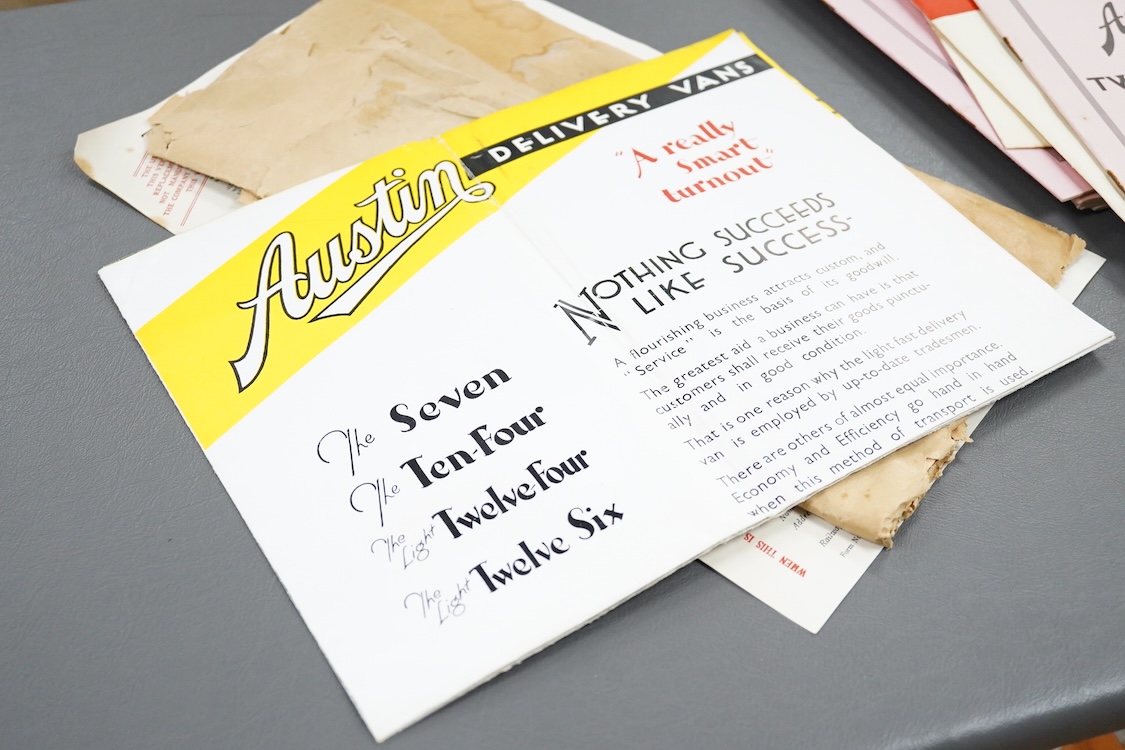 Austin DELIVERY VANS
The Seven
The Ten-Four
The Light Twelve-Four
The Light Twelve Six
"A really
Smart
turnout"
NOTHING SUCCEEDS
LIKE SUCCESS-
A flourishing business attracts custom, and
"Service" is the basis of its goodwill.
The greatest aid a business can have is that
customers shall receive their goods punctu-
ally and in good condition.
That is one reason why the light fast delivery
van is employed by up-to-date tradesmen.
There are others of almost equal importance.
Economy and Efficiency go hand in hand
when this method of transport is used.
NOT
THE COMPANY
THIS
WHEN THIS IS